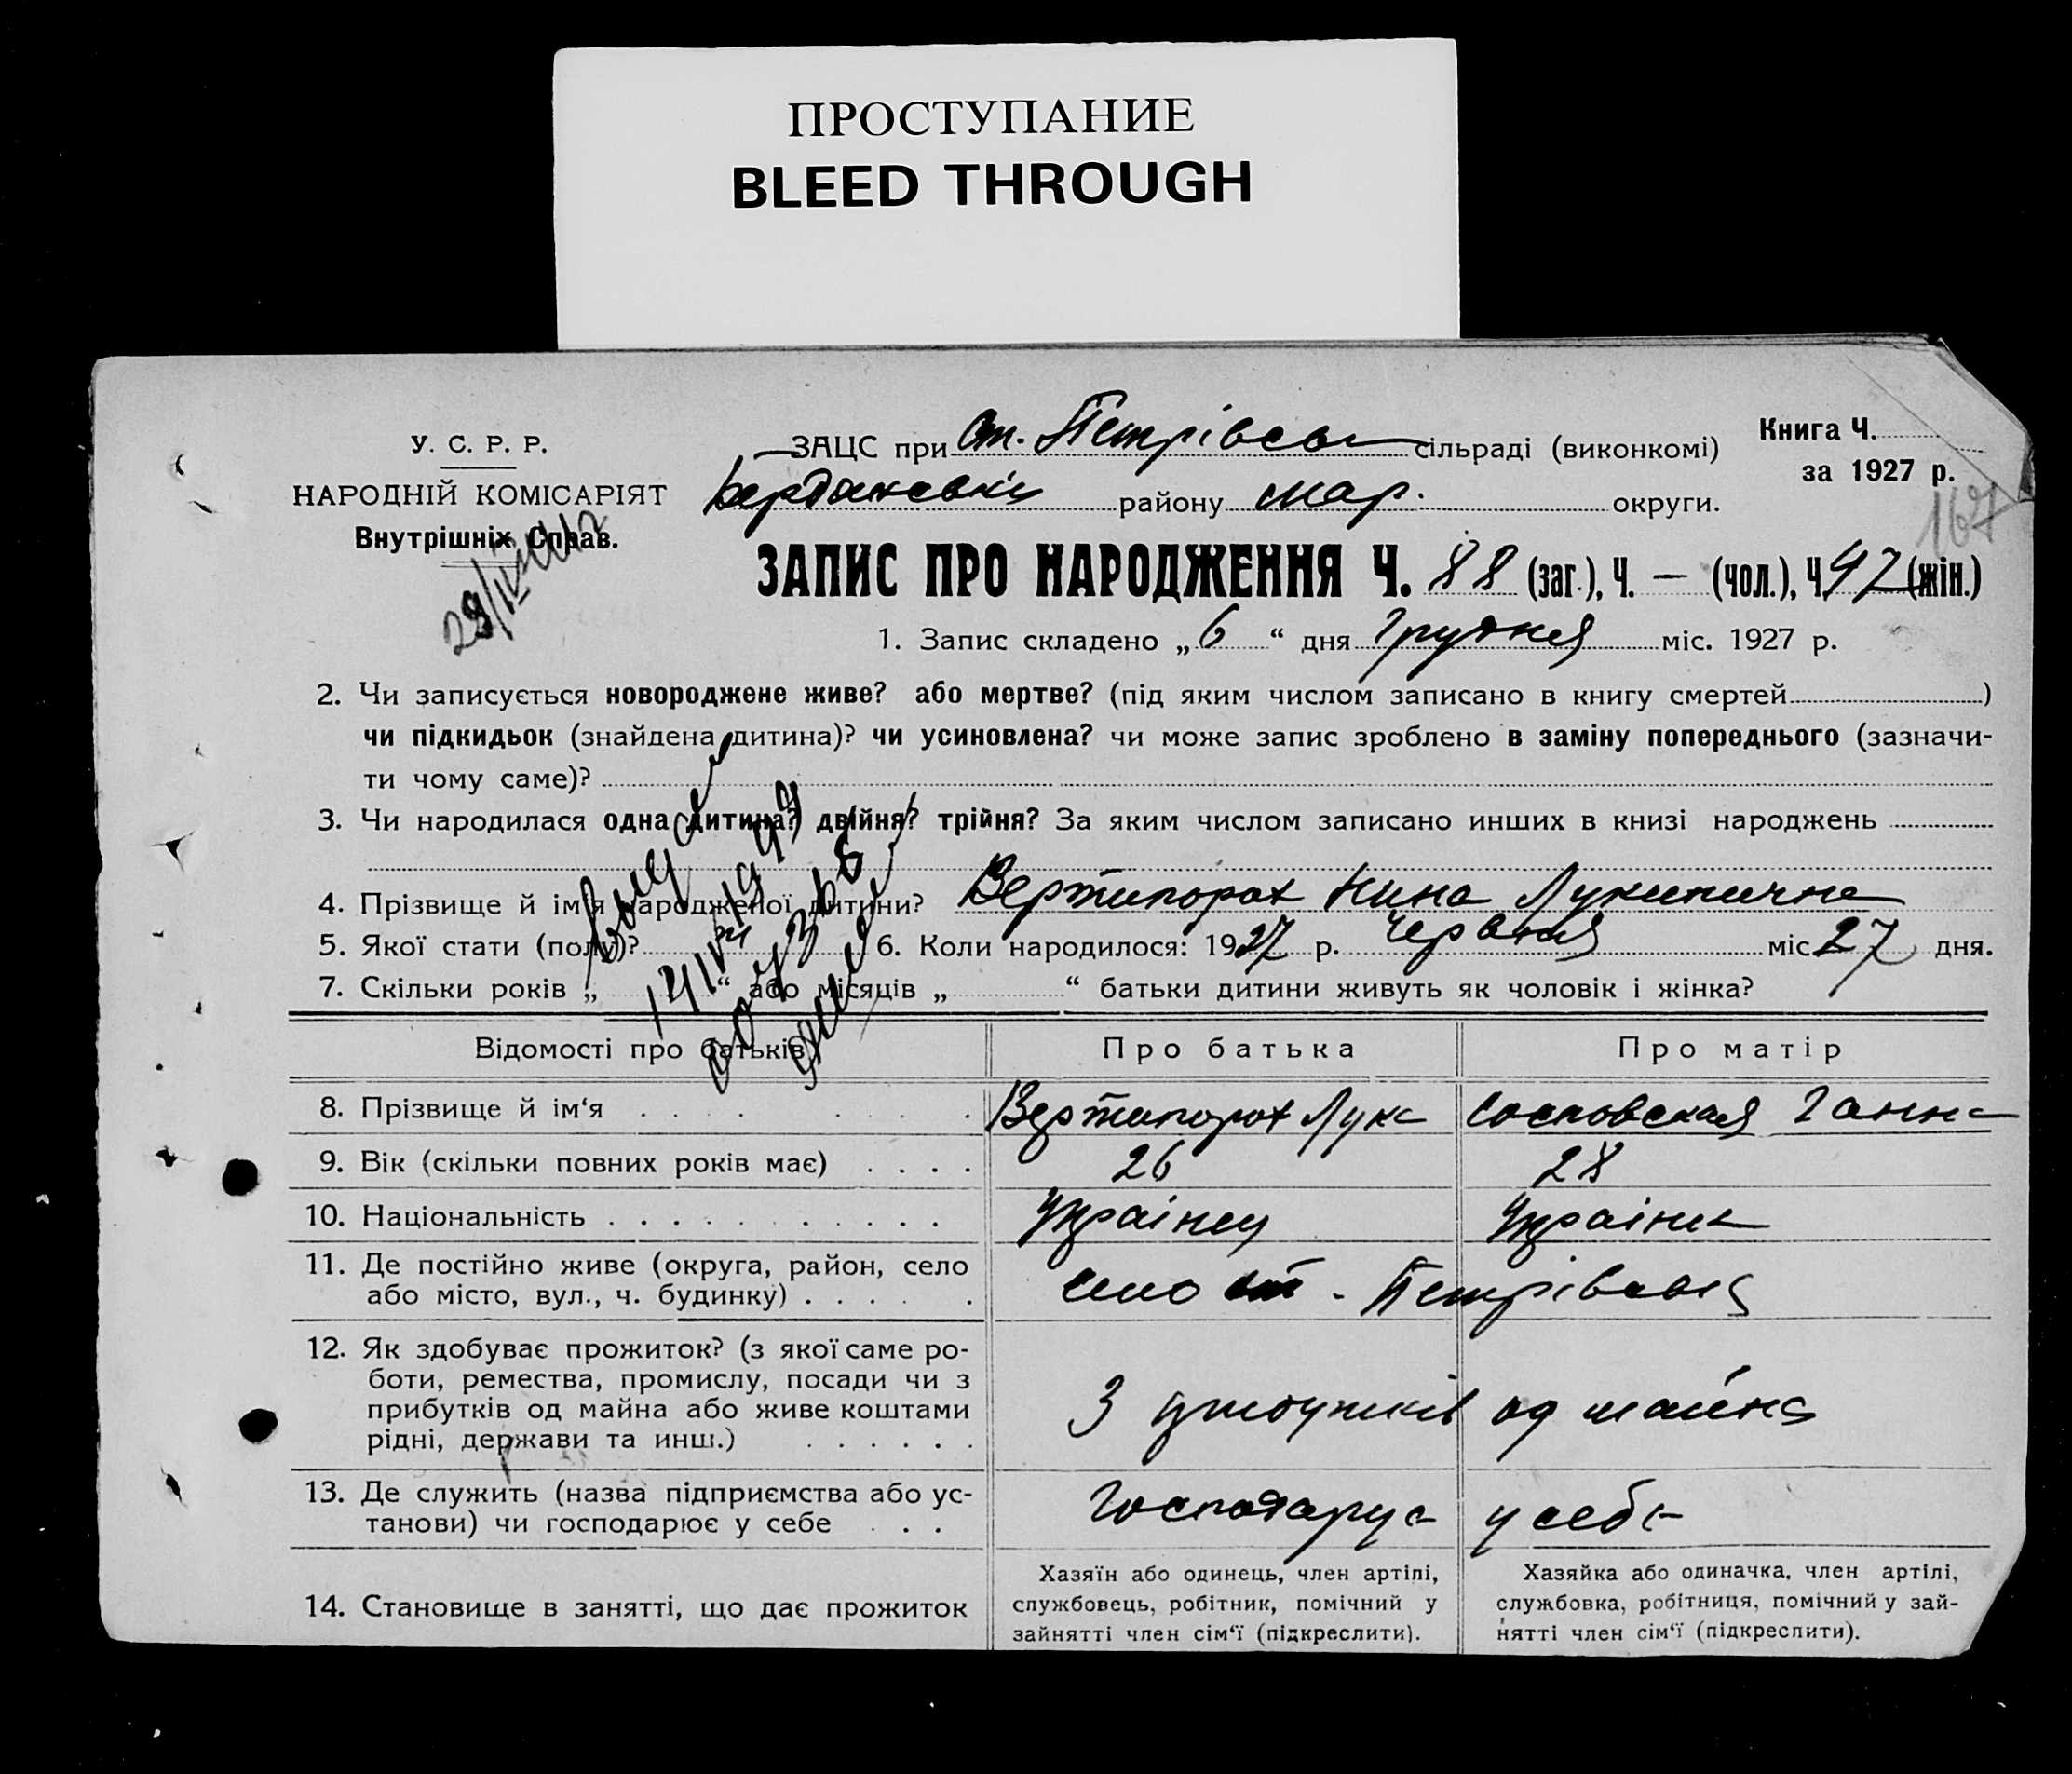 ПРОСТУПАНИЕ
BLEED THROUGH
У. С. Р. Р.
НАРОДНІЙ КОМІСАРІЯТ
Внутрішніх Справ.
ЗАЦС при Ст. Петрівськ сільраді (виконкомі)
району Мар. округи.
Книга Ч.
за 1927 р.
167
ЗАПИС ПРО НАРОДЖЕННЯ Ч. 88 (заг.), Ч. — (чол.), Ч. 42 (жін.)
1. Запис складено „ 6 “ дня Грудня міс. 1927 р.
2. Чи записується новороджене живе? або мертве? (під яким числом записано в книгу смертей )
чи підкидьок (знайдена дитина)? чи усиновлена? чи може запис зроблено в заміну попереднього (зазначи-
ти чому саме)?
3. Чи народилася одна дитина? двійня? трійня? За яким числом записано инших в книзі народжень
4. Прізвище й ім'я народженої дитини? Вертипорох Нина Лукинична
5. Якої стати (полу)? 6. Коли народилося: 1927 р. червня міс. 27 дня.
7. Скільки років „ “ або місяців „ “ батьки дитини живуть як чоловік і жінка?
Відомості про батьків
Про батька
Про матір
8. Прізвище й ім‘я . . . . . . Вертипорох Лука Сосновская Ганна
9. Вік (скільки повних років має) . . . . 26 28
10. Національність . . . . . . . . . . . Українец Українка
11. Де постійно живе (округа, район, село
або місто, вул., ч. будинку) . . . . . .
село ст. Петрівське
12. Як здобуває прожиток? (з якої саме ро-
боти, ремества, промислу, посади чи з
прибутків од майна або живе коштами
рідні, держави та инш.) . . . . . .
З од майна
13. Де служить (назва підприємства або ус-
танови) чи господарює у себе . . .
Господарує у себе
14. Становище в занятті, що дає прожиток
Хазяїн або одинець, член артілі,
службовець, робітник, помічний у
зайнятті член сім‘ї (підкреслити).
Хазяйка або одиначка, член артілі,
службовка, робітниця, помічний у зай-
нятті член сім‘ї (підкреслити).